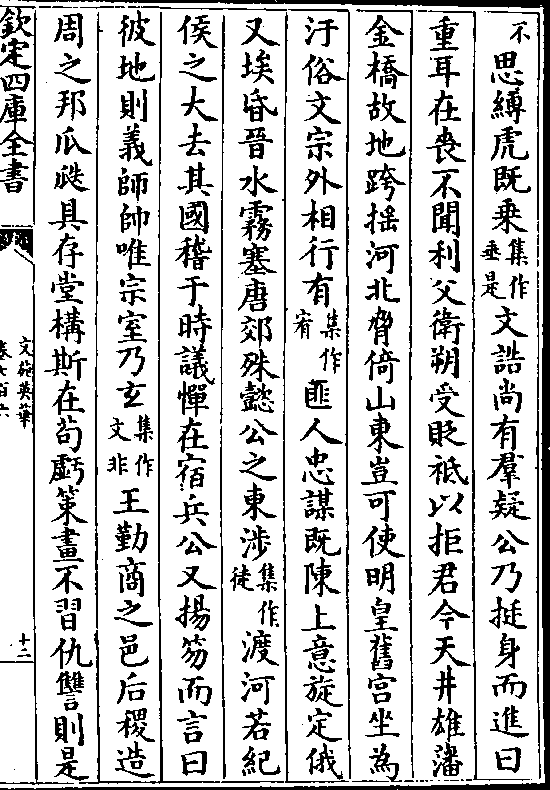 不思縛虎既乗集作垂是文誥尚有羣疑公乃挺身而進曰
重耳在喪不聞利父衛朔受貶祗以拒君今天井雄藩
金橋故地跨揺河北脅倚山東豈可使明皇舊宮坐為
汙俗文宗外相行有集作宥匪人忠謀既陳上意旋定俄
又埃昏晉水霧塞唐郊殊懿公之東渉集作徒渡河若紀
侯之大去其國稽于時議憚在宿兵公又揚笏而言曰
彼地則義師帥唯宗室乃玄集作文非王勤商之邑后稷造
周之邦瓜瓞具存堂構斯在茍虧策畫不習仇讐則是
欽定四庫全書
文苑英華
卷六百六
十二